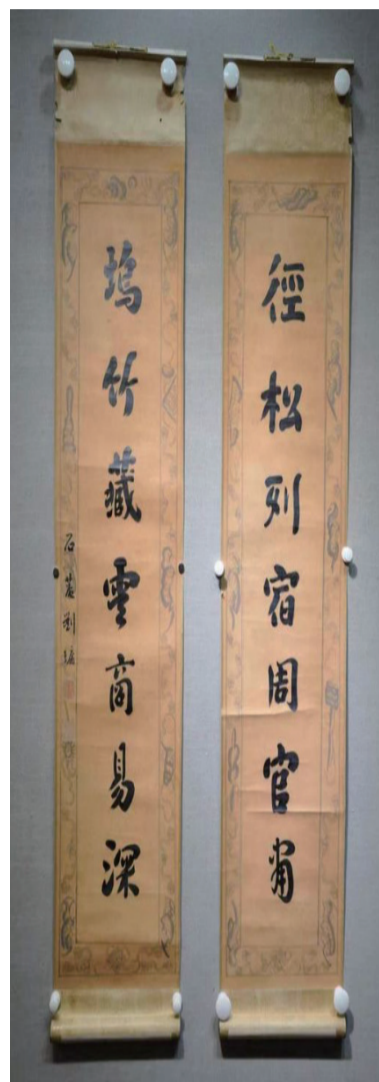 徑松列宿周官
塢竹藏雲商易深
石菴劉墉